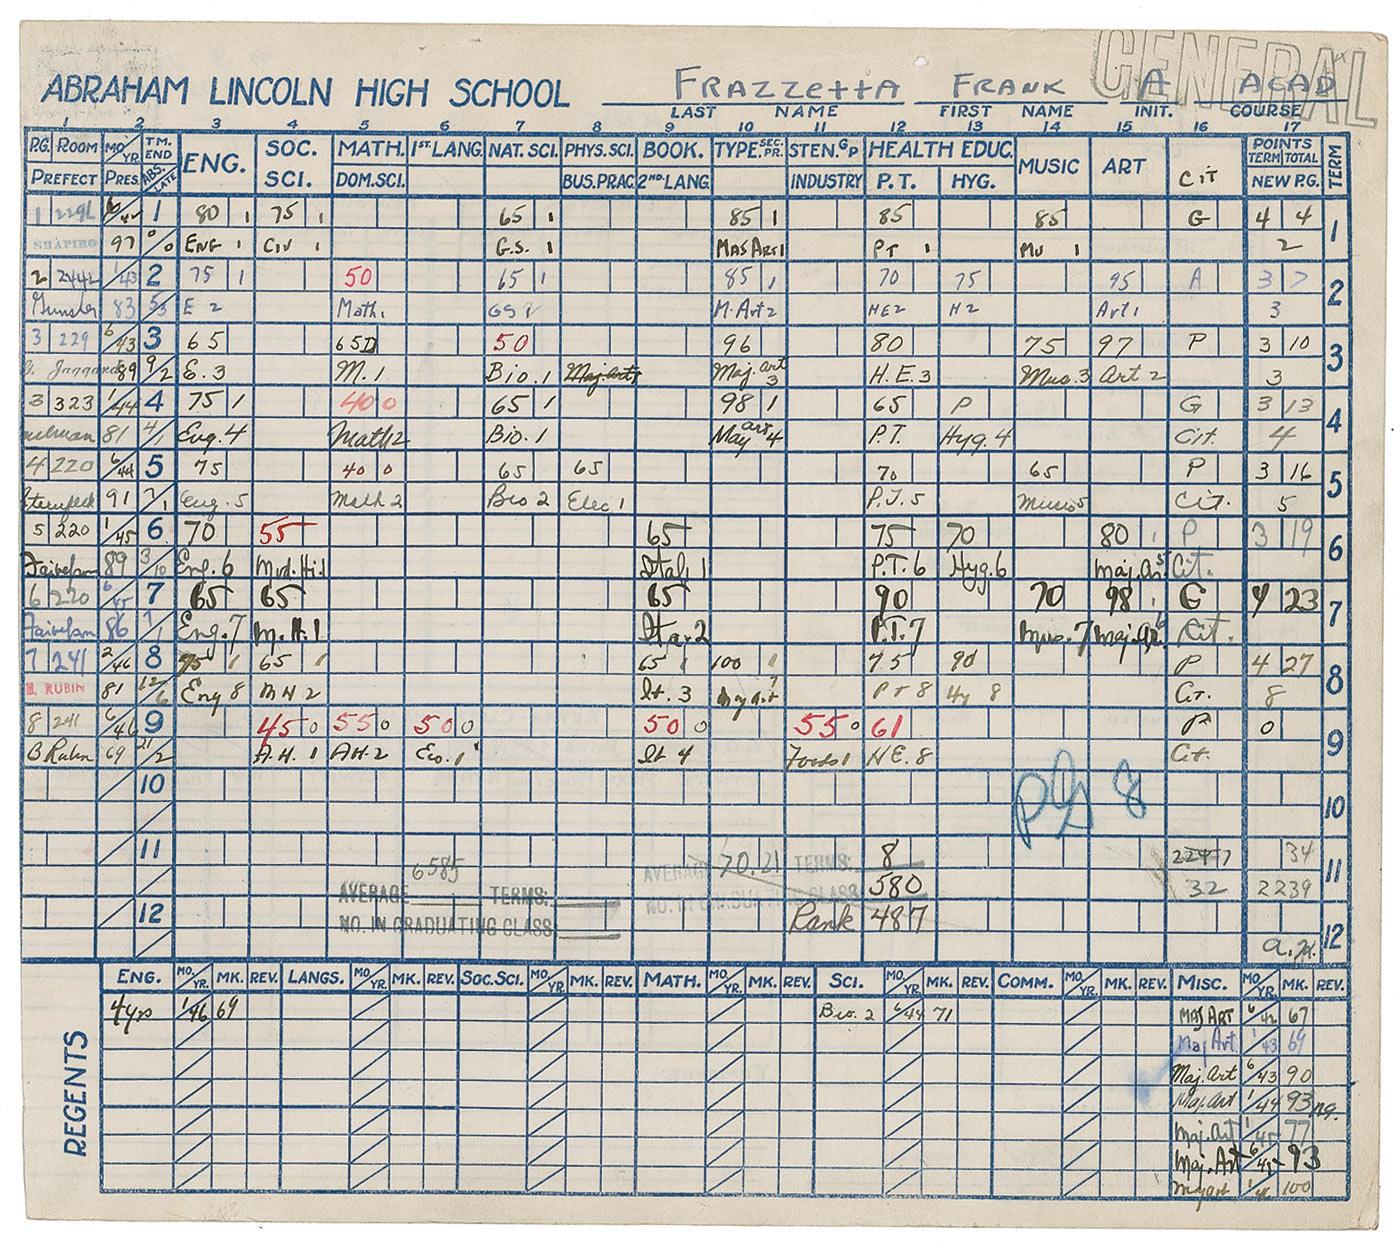 GENERAL
ABRAHAM LINCOLN HIGH SCHOOL FRAZZETTA FRANK A ACAD
LAST NAME FIRST NAME INIT. COURSE
1 2 3 4 5 6 7 8 9 10 11 12 13 14 15 16 17
P.G. ROOM MO/YR. TM. END ENG. SOC. SCI. MATH. 1ST. LANG. NAT. SCI. PHYS. SCI. BOOK. TYPE SEC. PR. STEN. GP HEALTH EDUC. MUSIC ART CIT POINTS TERM TOTAL TERM
PREFECT PRES. ABS./LATE DOM. SCI. BUS. PRAC. 2ND LANG. INDUSTRY P.T. HYG. NEW P.G.
1 229L 6/42 1 80 1 75 1 65 1 85 1 85 85 G 4 4 1
SHAPIRO 97 0/0 ENG 1 CIV 1 G.S. 1 MAJ ART 1 PT 1 MU 1 2
2 2442 1/43 2 75 1 50 65 1 85 1 70 75 95 A 3 7 2
83 5/3 E 2 Math 1 GS 2 M. Art 2 HE2 H2 Art 1 3
3 229 6/43 3 65 65D 50 96 80 75 97 P 3 10 3
89 9/2 E. 3 M. 1 Bio. 1 Maj. art Maj. art 3 H.E. 3 Mus. 3 Art 2 3
3 323 1/44 4 75 1 40 0 65 1 98 1 65 P G 3 13 4
81 4/1 Eng. 4 Math 2 Bio. 1 Maj art 4 P.T. Hyg. 4 Cit. 4
4 220 6/44 5 75 40 0 65 65 70 65 P 3 16 5
91 7/1 Eng. 5 Math 2 Bio 2 Elec 1 P.T. 5 Music 5 Cit. 5
5 220 1/45 6 70 55 65 75 70 80 1 P 3 19 6
89 3/10 Eng. 6 Mod. Hi. 1 Ital. 1 P.T. 6 Hyg. 6 Maj. Ar. 5 Cit.
6 220 6/45 7 65 65 65 90 70 98 1 G 4 23 7
86 7/1 Eng. 7 M. H. 1 Ita. 2 P.T. 7 Mus. 7 Maj. Ar. 6 Cit.
7 241 2/46 8 75 1 65 1 65 1 100 1 75 90 P 4 27 8
B. RUBIN 81 12/6 Eng 8 M H 2 It. 3 Maj art 7 PT 8 Hy 8 Cit. 8
8 241 6/46 9 45 0 55 0 50 0 50 0 55 0 61 P 0 9
B Rubin 69 21/2 A.H. 1 AH. 2 Eco. 1 It 4 Foods 1 H.E. 8 Cit.
10 PG 8 10
11 6585 AVERAGE 70.21 TERMS: 8 2247 34 11
AVERAGE TERMS: NO. IN GRADUATING CLASS 580 32 2239
12 NO. IN GRADUATING CLASS Rank 487 12
REGENTS
ENG. MO/YR. MK. REV. LANGS. MO/YR. MK. REV. SOC. SCI. MO/YR. MK. REV. MATH. MO/YR. MK. REV. SCI. MO/YR. MK. REV. COMM. MO/YR. MK. REV. MISC. MO/YR. MK. REV.
4yrs 1/46 69 Bio. 2 6/44 71 MAJ ART 6/42 67
Maj Art 1/43 69
Maj. Art 6/43 90
Maj. Art 1/44 93 ng.
Maj. Art 1/45 77
Maj. Art 6/45 93
Maj art 1/46 100